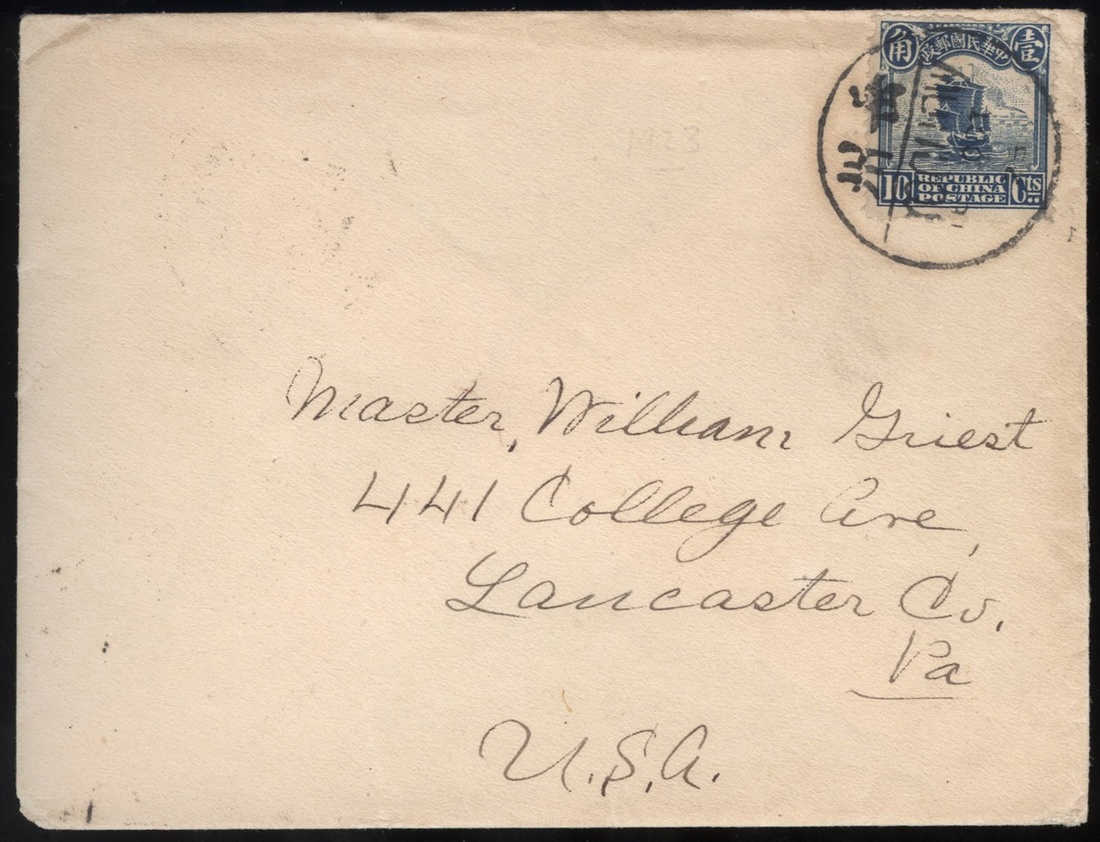 角 中華民國郵政 壹
10 REPUBLIC OF CHINA POSTAGE Cts
1923
Master, William Griest
441 College Ave,
Lancaster Co.
Pa
U.S.A.